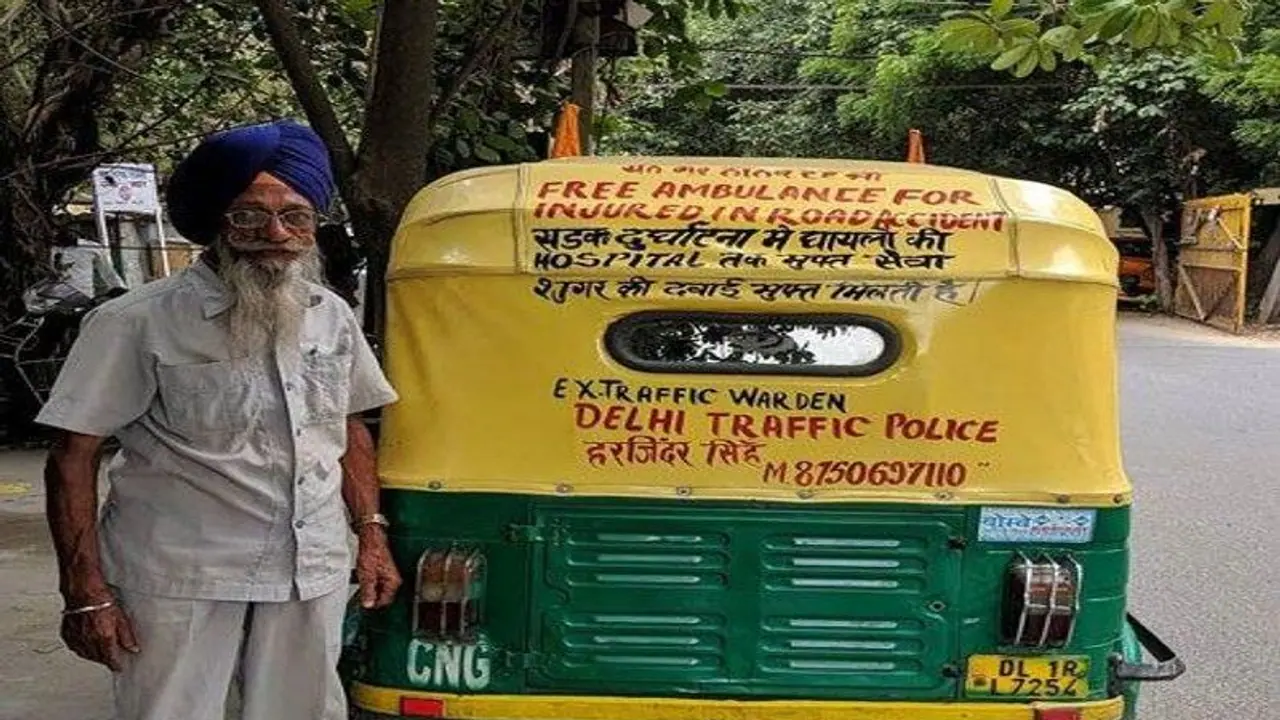 FREE AMBULANCE FOR
INJURED IN ROAD ACCIDENT
सडक दुर्घाटना मे घायलो की
HOSPITAL तक मुफ्त सेवा
शुगर की दवाई मुफ्त मिलती है
EX.TRAFFIC WARDEN
DELHI TRAFFIC POLICE
हरजिंदर सिंह
M.8750697110
CNG
DL 1R
L7254